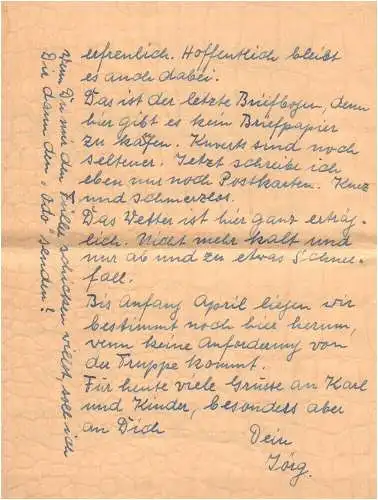 erfreulich. Hoffentlich bleibt
es auch dabei.
Das ist der letzte Briefbogen, denn
hier gibt es kein Briefpapier
zu kaufen. Kuverts sind noch
seltener. Jetzt schreibe ich
eben nur noch Postkarten. Kurz
und schmerzlos.
Das Wetter ist hier ganz erträg-
lich. Nicht mehr kalt und
nur ab und zu etwas Schnee-
fall.
Bis Anfang April liegen wir
bestimmt noch hier herum,
wenn keine Anforderung von
der Truppe kommt.
Für heute viele Grüsse an Karl
und Kinder, besonders aber
an Dich
Dein
Jörg.
Wenn Du mir den Füller schicken willst, soll ich
Dir dann den "Odo" senden?